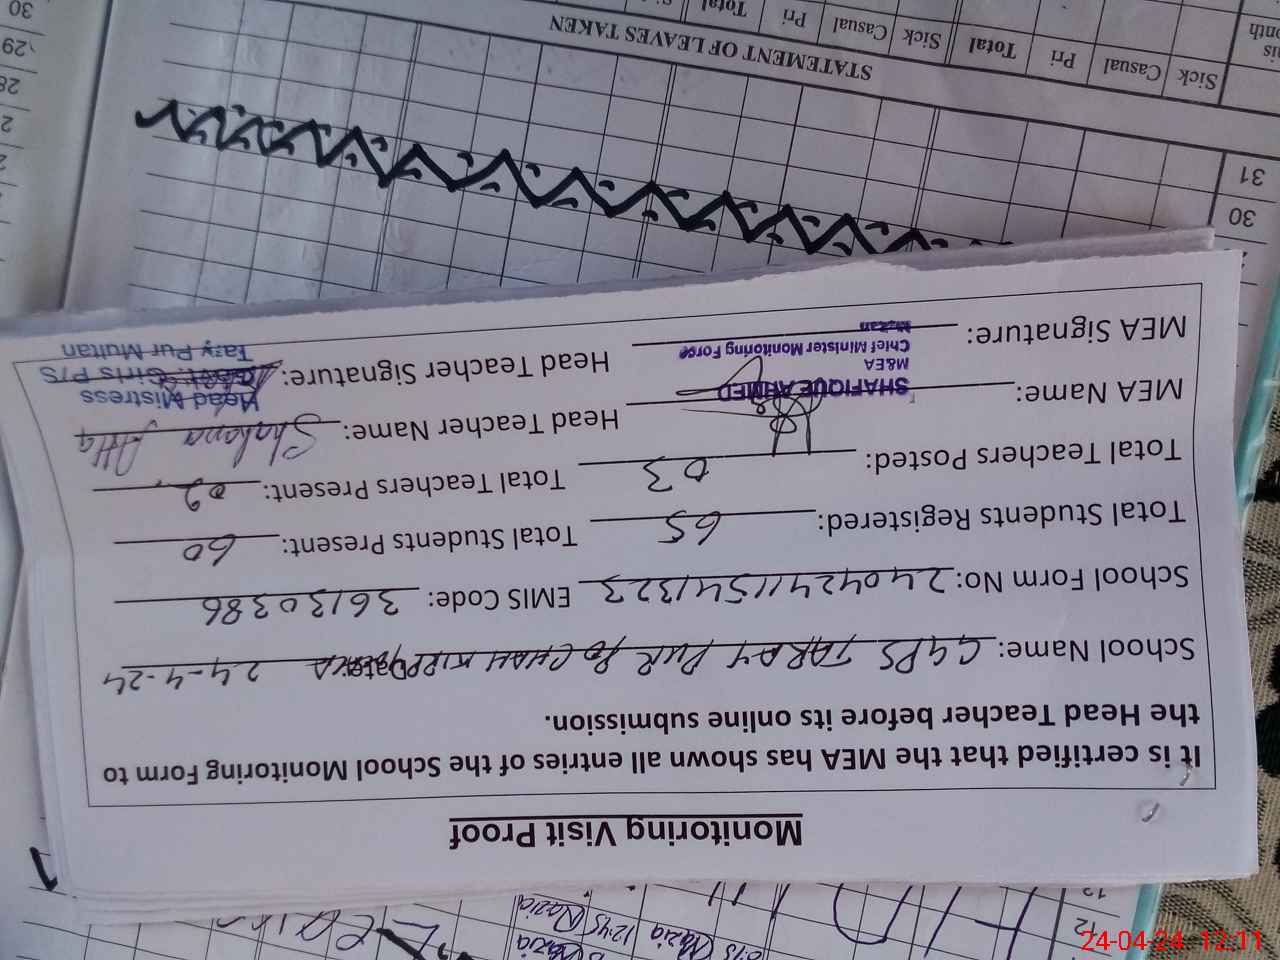 Monitoring Visit Proof
It is certified that the MEA has shown all entries of the School Monitoring Form to
the Head Teacher before its online submission.
School Name: GGPS TARAY PUR PO CHAH Date: 24-4-24
School Form No: 24042411541323 EMIS Code: 36130386
Total Students Registered: 65 Total Students Present: 60
Total Teachers Posted: 03 Total Teachers Present: 02
MEA Name: Head Teacher Name: Shahana Atta
SHAFIQUE AHMED
M&EA
Chief Minister Monitoring Force
Multan
MEA Signature: Head Teacher Signature:
Head Mistress
Govt. Girls P/S
Tary Pur Multan
30
31
STATEMENT OF LEAVES TAKEN
Sick Casual Pri Total Sick Casual Pri Total
28
29
30
12
Nazia 12:45 Nazia
24-04-24 12:11